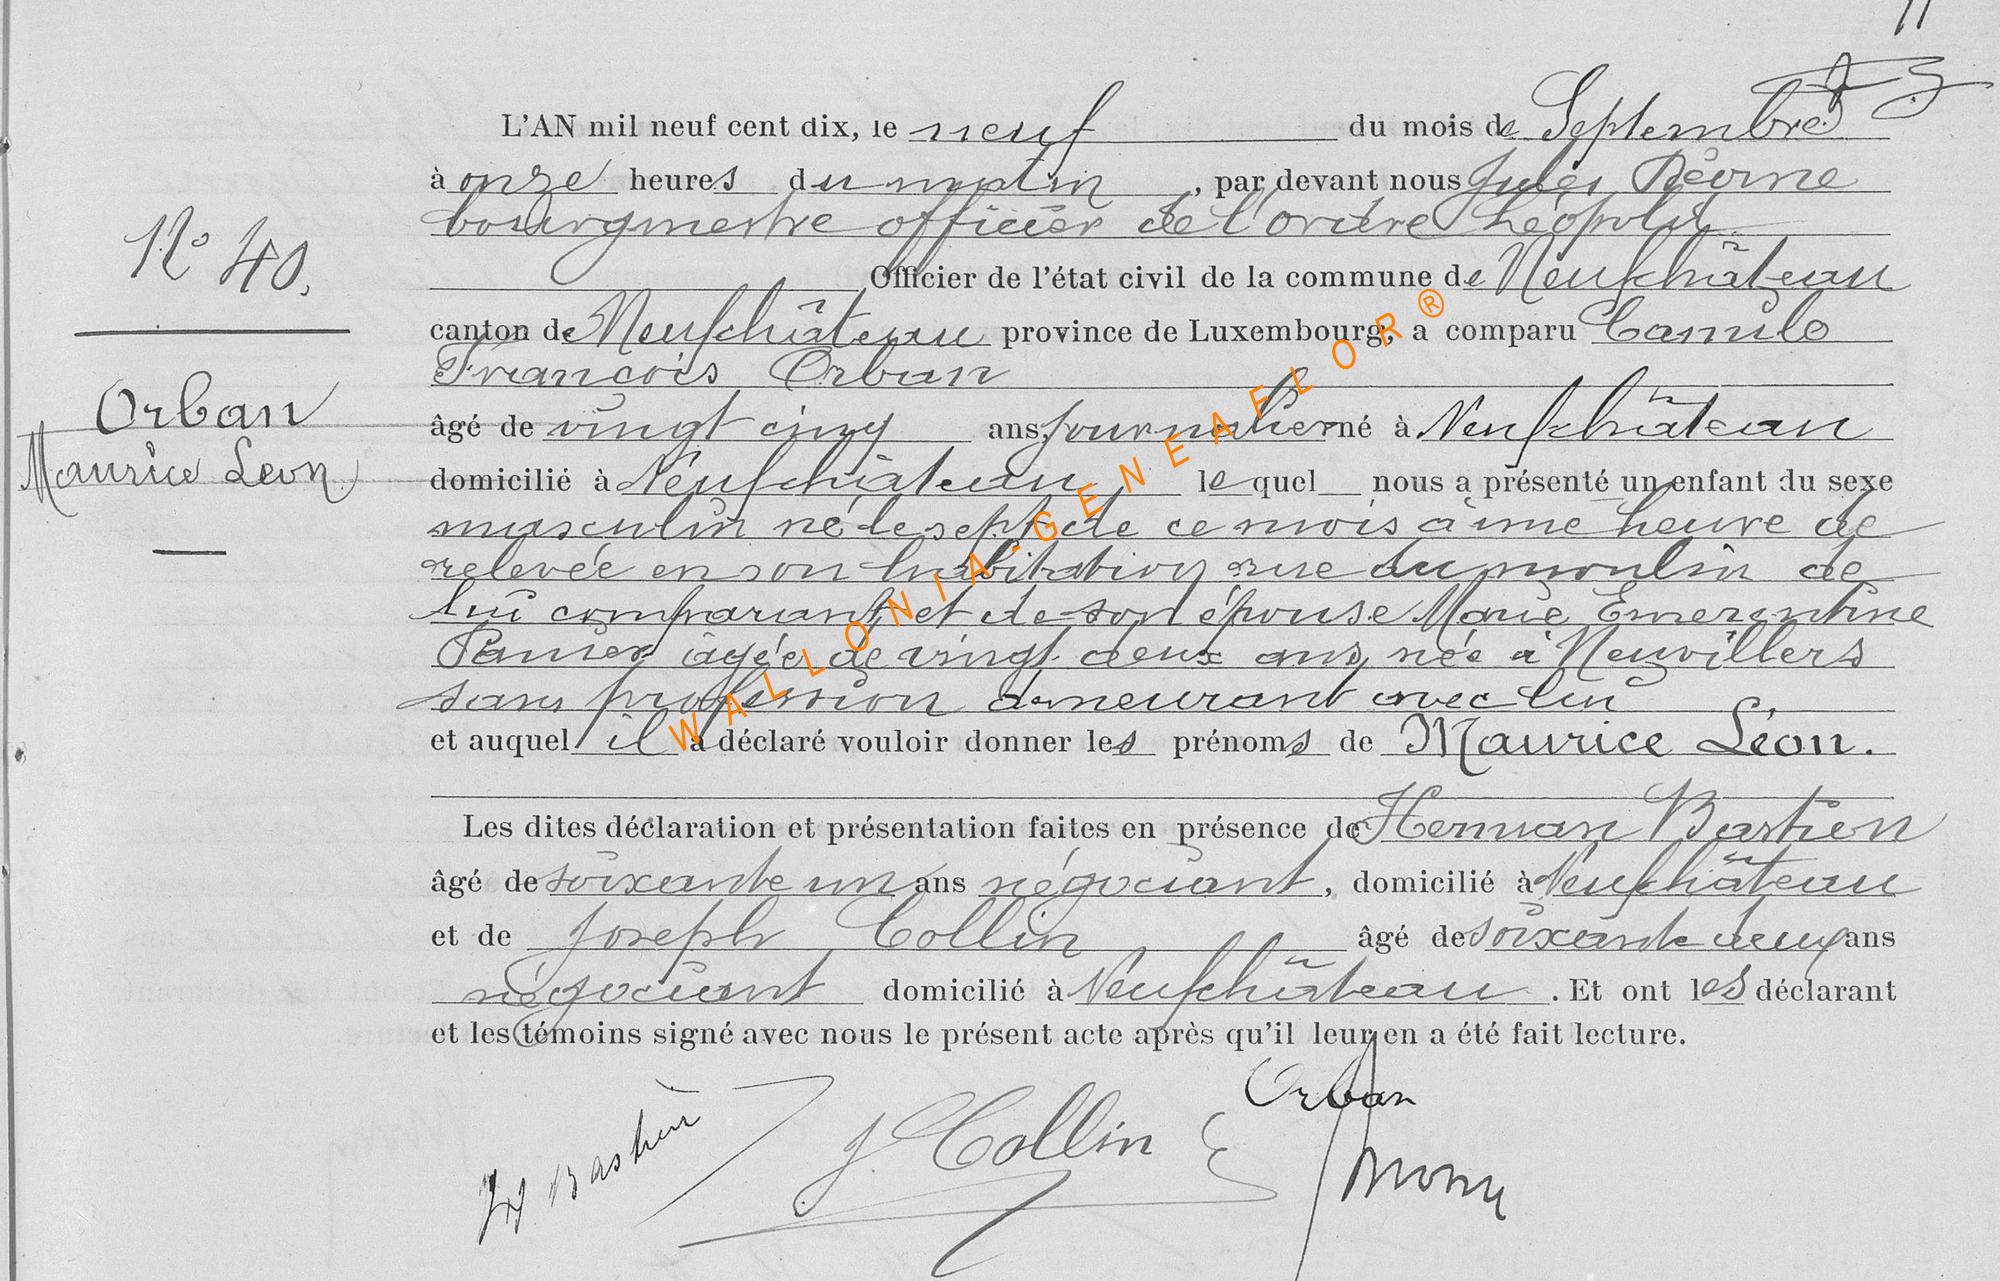 11
L'AN mil neuf cent dix, le neuf du mois de Septembre
à onze heures du matin, par devant nous Jules
bourgmestre officier de l'ordre Léopold
N° 40.
Officier de l'état civil de la commune de Neufchâteau
canton de Neufchâteau province de Luxembourg, a comparu Camile
François Orban
Orban
Maurice Leon
âgé de vingt cinq ans, journalier né à Neufchâteau
domicilié à Neufchâteau lequel nous a présenté un enfant du sexe
masculin né le sept de ce mois à une heure de
relevée en son habitation rue du moulin de
lui comparant et de son épouse Marie Emerentine
âgée de vingt deux ans, née à Neuvillers
sans profession demeurant avec lui
et auquel il a déclaré vouloir donner les prénoms de Maurice Léon.
Les dites déclaration et présentation faites en présence de Herman Bastien
âgé de soixante un ans négociant, domicilié à Neufchâteau
et de Joseph Collin âgé de soixante deux ans
négociant domicilié à Neufchâteau. Et ont les déclarant
et les témoins signé avec nous le présent acte après qu'il leur en a été fait lecture.
Orban
Bastien J. Collin
WALLONIA-GENEAFLOR®